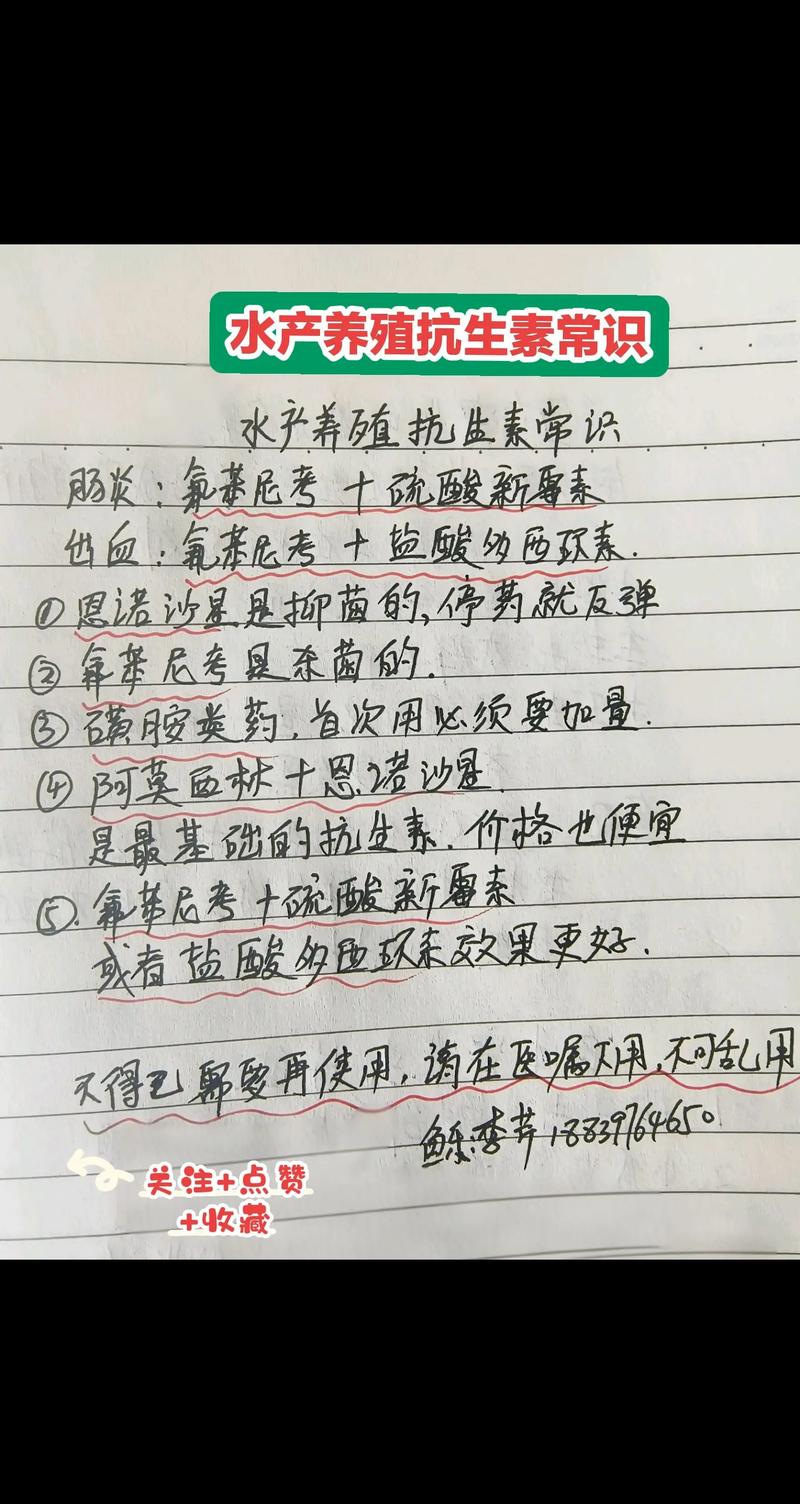 水产养殖抗生素常识
水产养殖抗生素常识
肠炎:氟苯尼考+硫酸新霉素
出血:氟苯尼考+盐酸多西环素.
①恩诺沙星是抑菌的,停药就反弹
②氟苯尼考是杀菌的.
③磺胺类药,首次用必须要加量.
④阿莫西林+恩诺沙星
是最基础的抗生素.价格也便宜
⑤.氟苯尼考+硫酸新霉素
或者盐酸多西环素效果更好.
不得已 需要再使用,请在医嘱下用,不可乱用
18839764650
关注+点赞
+收藏